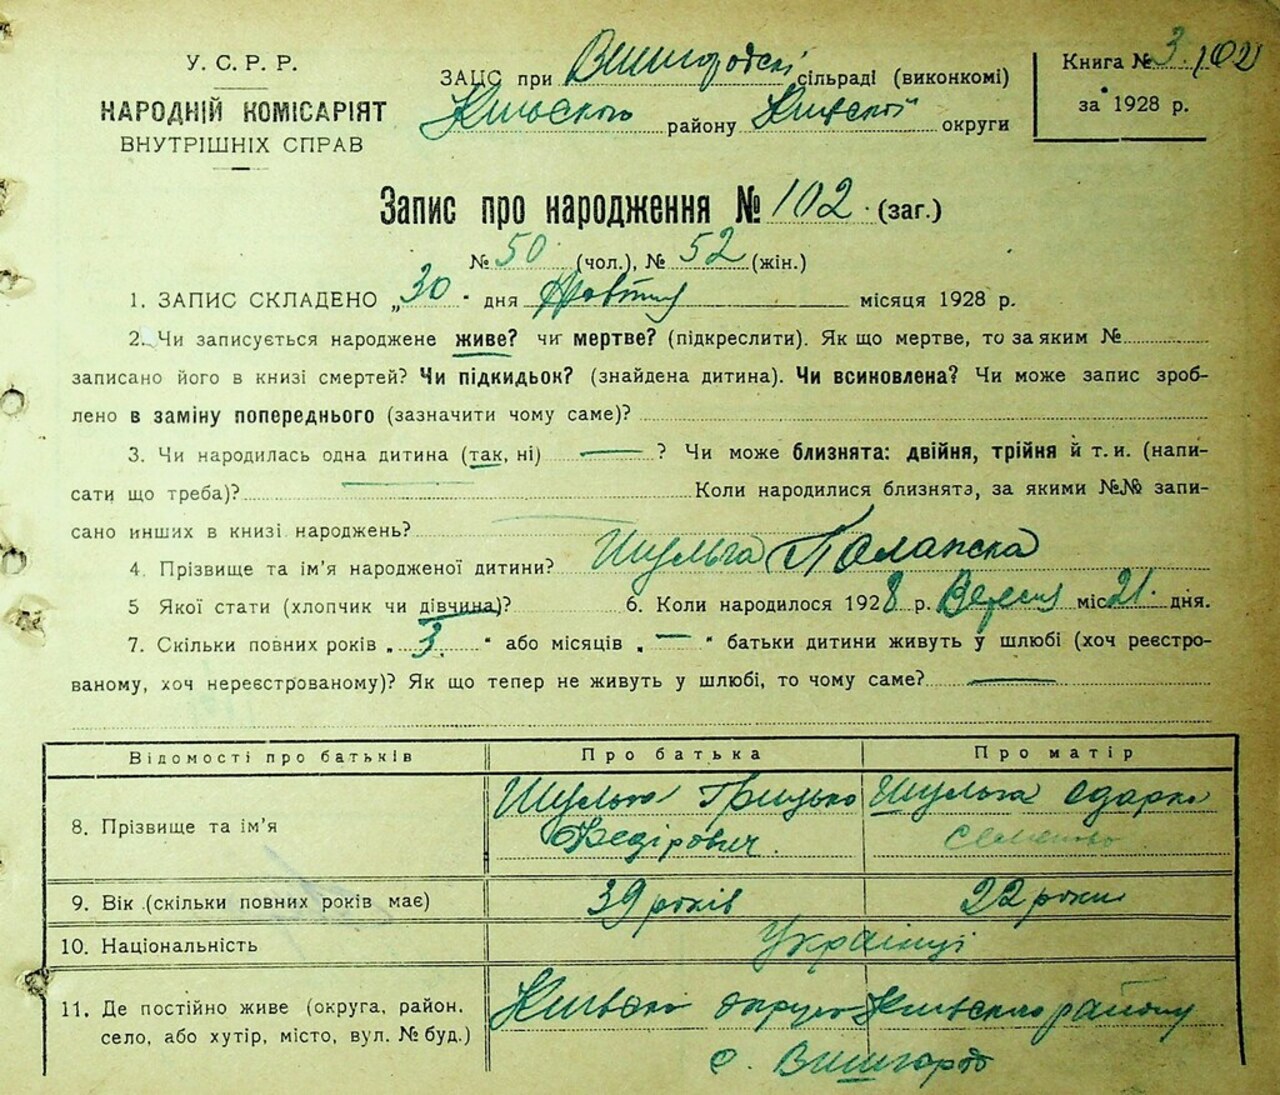 У. С. Р. Р.
НАРОДНІЙ КОМІСАРІЯТ
ВНУТРІШНІХ СПРАВ
ЗАЦС при Вишгородскі сільраді (виконкомі)
Київского району Київскоі округи
Книга № 3. 102
за 1928 р.
Запис про народження № 102. (заг.)
№ 50 (чол.), № 52 (жін.)
1. ЗАПИС СКЛАДЕНО „30" дня Жовтня місяця 1928 р.
2. Чи записується народжене живе? чи мертве? (підкреслити). Як що мертве, то за яким №
записано його в книзі смертей? Чи підкидьок? (знайдена дитина). Чи всиновлена? Чи може запис зроб-
лено в заміну попереднього (зазначити чому саме)?
3. Чи народилась одна дитина (так, ні) — ? Чи може близнята: двійня, трійня й т. и. (напи-
сати що треба)? Коли народилися близнята, за якими №№ запи-
сано инших в книзі народжень?
4. Прізвище та ім'я народженої дитини? Шульга Палажка
5 Якої стати (хлопчик чи дівчина)? 6. Коли народилося 1928 р. Вересня міс 21. дня.
7. Скільки повних років „ 3. " або місяців „ — " батьки дитини живуть у шлюбі (хоч реєстро-
ваному, хоч нереєстрованому)? Як що тепер не живуть у шлюбі, то чому саме? —
Відомості про батьків Про батька Про матір
8. Прізвище та ім'я Шульга Грицько Федірович. Шульга Одарка
9. Вік (скільки повних років має) 39 років 22 роки
10. Національність Українці
11. Де постійно живе (округа, район,
село, або хутір, місто, вул. № буд.)
Київска округа Київского району
с. Вишгород